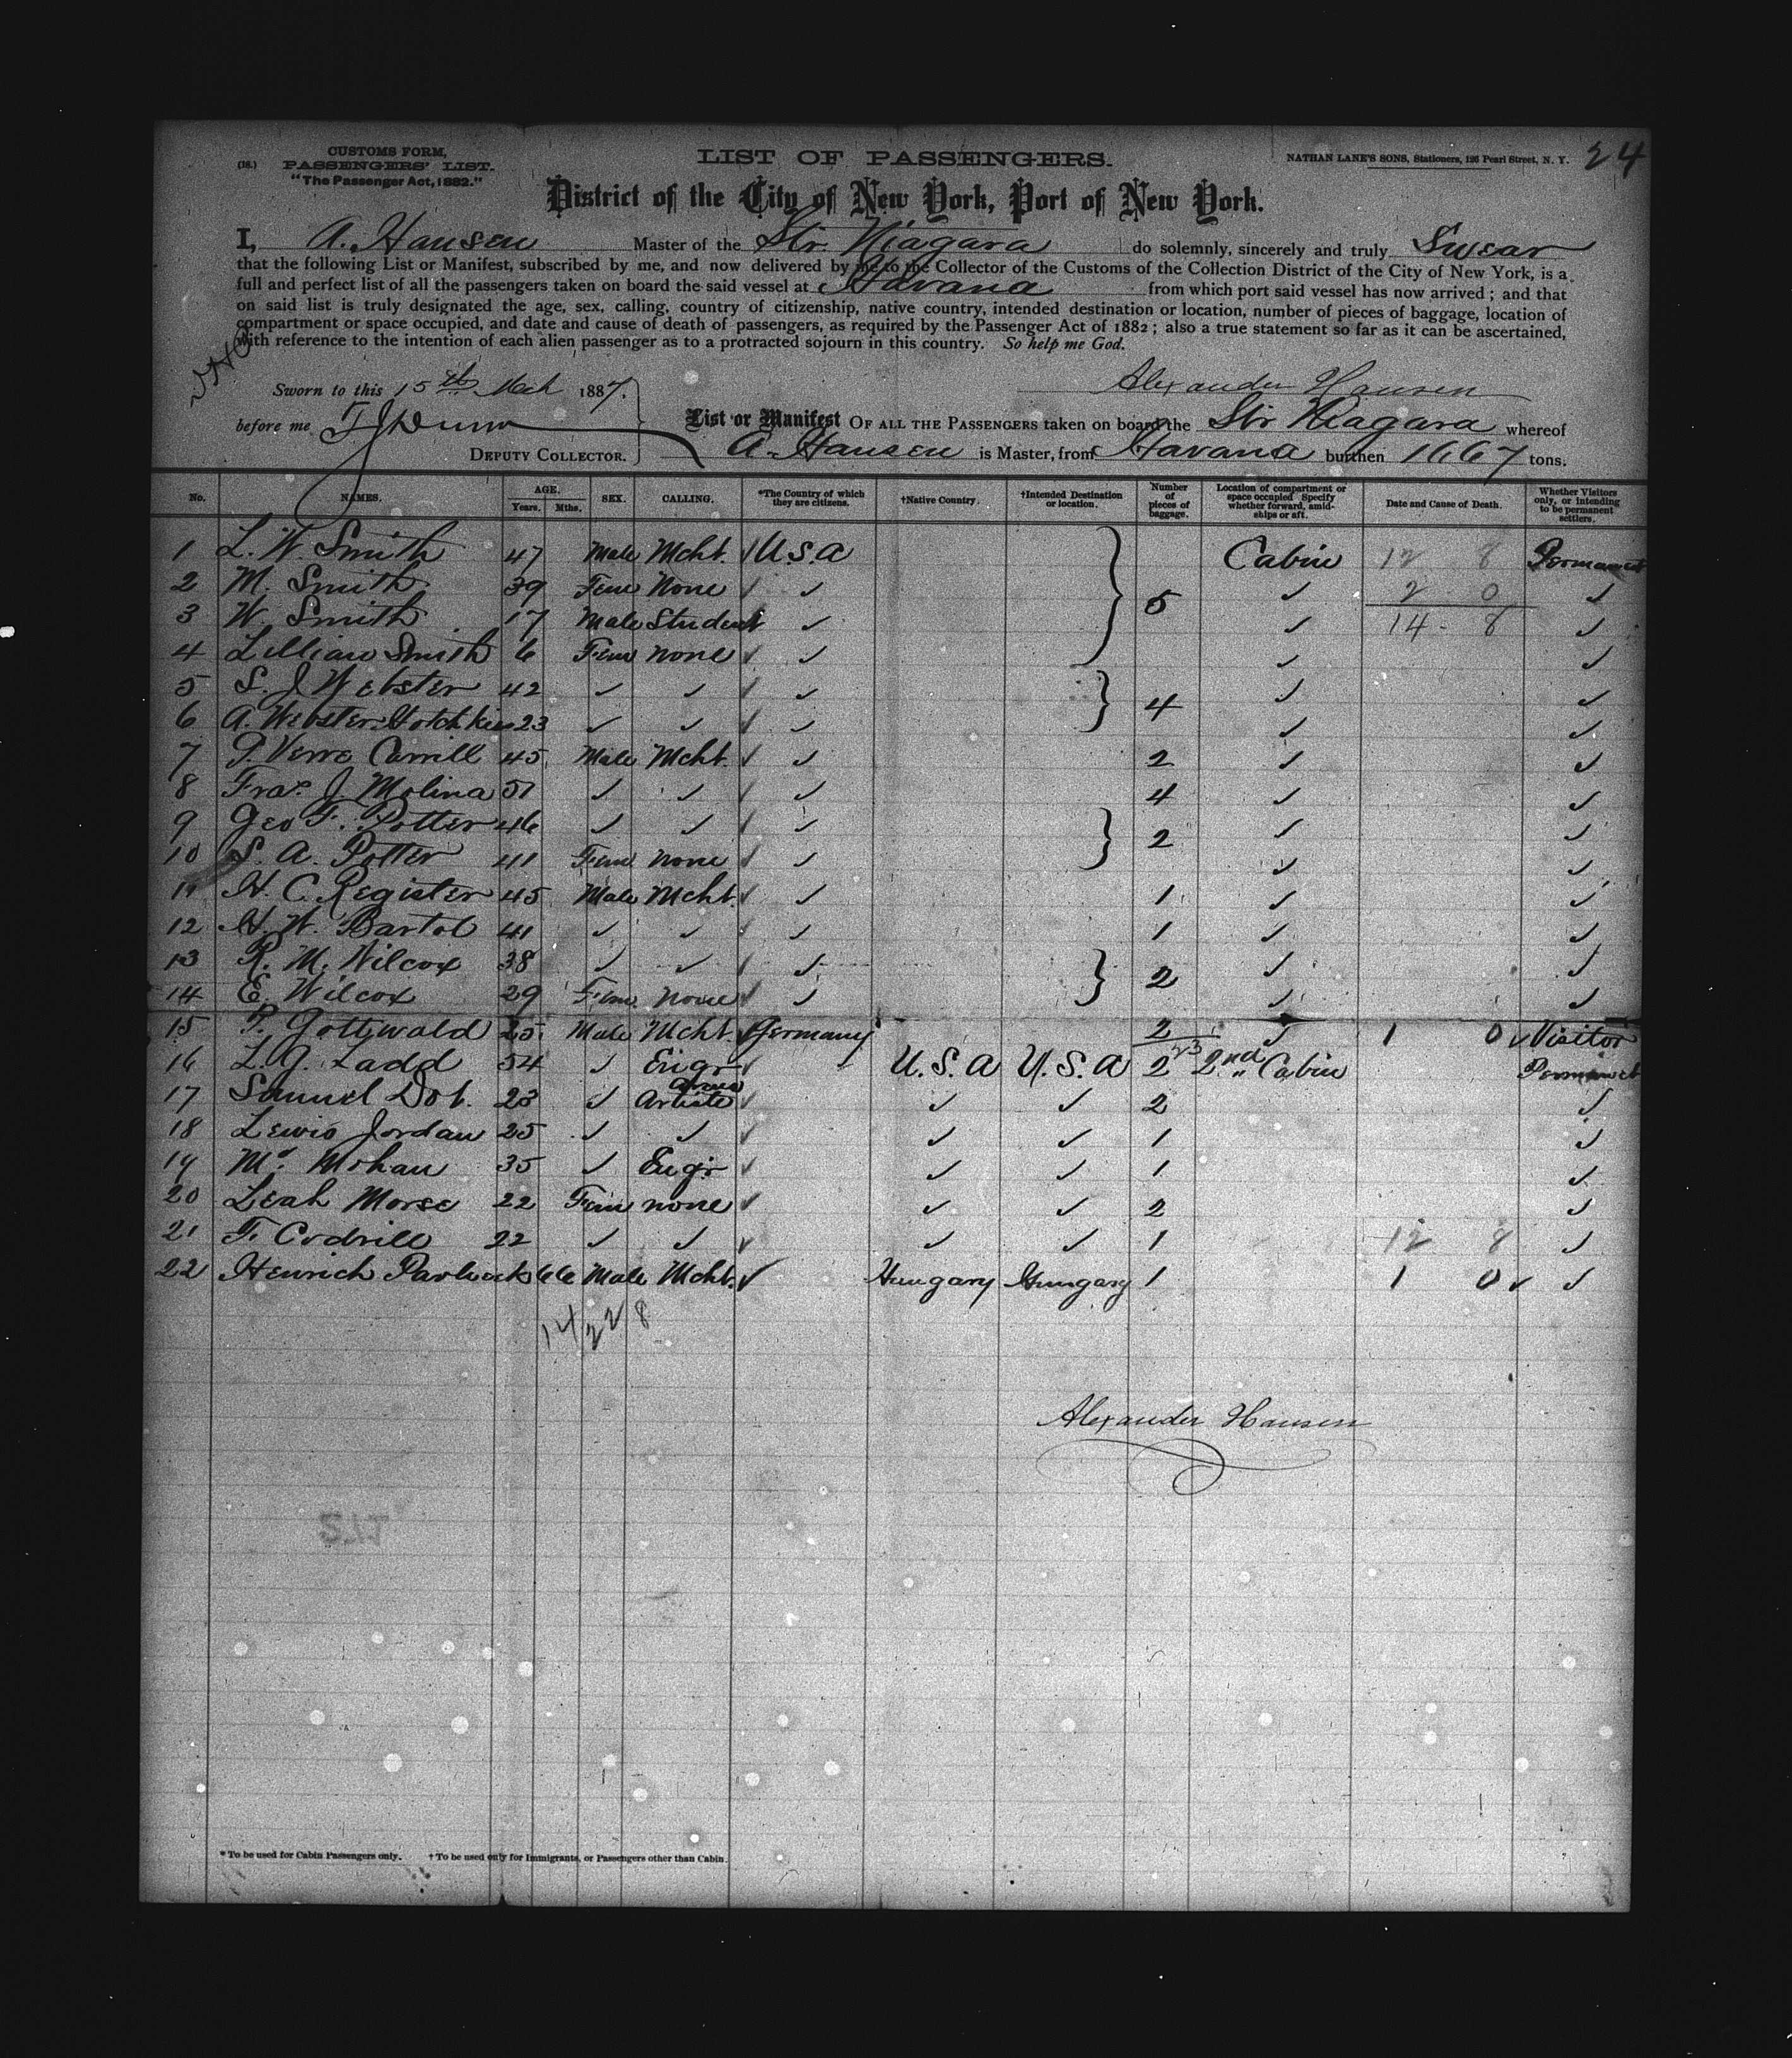 24
CUSTOMS FORM,
(18.) PASSENGERS' LIST.
"The Passenger Act, 1882."
LIST OF PASSENGERS.
NATHAN LANE'S SONS, Stationers, 126 Pearl Street, N. Y.
District of the City of New York, Port of New York.
I, A. Hansen Master of the Str. Niagara do solemnly, sincerely and truly Swear
that the following List or Manifest, subscribed by me, and now delivered by me to the Collector of the Customs of the Collection District of the City of New York, is a
full and perfect list of all the passengers taken on board the said vessel at Havana from which port said vessel has now arrived; and that
on said list is truly designated the age, sex, calling, country of citizenship, native country, intended destination or location, number of pieces of baggage, location of
compartment or space occupied, and date and cause of death of passengers, as required by the Passenger Act of 1882; also a true statement so far as it can be ascertained,
with reference to the intention of each alien passenger as to a protracted sojourn in this country. So help me God.
Sworn to this 15th Mch 1887.
Alexander Hansen
before me
DEPUTY COLLECTOR.
List or Manifest OF ALL THE PASSENGERS taken on board the Str Niagara whereof
A. Hansen is Master, from Havana burthen 1667 tons.
No. NAMES. AGE. Years. Mths. SEX. CALLING. *The Country of which they are citizens. †Native Country. †Intended Destination or location. Number of pieces of baggage. Location of compartment or space occupied Specify whether forward, amidships or aft. Date and Cause of Death. Whether Visitors only, or intending to be permanent settlers.
1 L. W. Smith 47 Male Mcht. ✓ U.S.A Cabin 12 8 Permanent
2 M. Smith 39 Fem None ✓ ✓ 5 ✓ 2 0 ✓
3 W. Smith 17 Male Student ✓ ✓ 14 - 8 ✓
4 Lillian Smith 6 Fem none ✓ ✓ ✓ ✓
5 S. J. Webster 42 ✓ ✓ ✓ ✓ 4 ✓ ✓
6 A. Webster Hotchkiss 23 ✓ ✓ ✓ ✓ ✓ ✓
7 45 Male Mcht. ✓ ✓ 2 ✓ ✓
8 J. Molina 51 ✓ ✓ ✓ ✓ 4 ✓ ✓
9 Geo F. Potter 46 ✓ ✓ ✓ 2 ✓ ✓
10 S. A. Potter 41 Fem none ✓ ✓ ✓ ✓
11 H. C. Register 45 Male Mcht. ✓ ✓ 1 ✓ ✓
12 H. W. Bartol 41 ✓ ✓ ✓ 1 ✓ ✓
13 R. M. Wilcox 38 ✓ ✓ ✓ ✓ 2 ✓ ✓
14 E. Wilcox 29 Fem. none ✓ ✓ ✓ ✓
15 P. Gottwald 25 Male Mcht. ✓ Germany 2 ✓ 1 0 ✓ Visitor
23
16 L. G. Ladd 54 ✓ Engr ✓ U.S.A U.S.A 2 2nd Cabin Permanent
17 Samuel Dot. 23 ✓ Artiste ✓ ✓ ✓ 2 ✓
18 Lewis Jordan 25 ✓ ✓ ✓ ✓ ✓ 1 ✓
19 Mr. Mohan 35 ✓ Engr ✓ ✓ ✓ 1 ✓
20 Leah Morse 22 Fem none ✓ ✓ ✓ 2 ✓
21 F. 22 ✓ ✓ ✓ ✓ ✓ 1 12 8 ✓
22 Henrich 66 Male Mcht. ✓ Hungary Hungary 1 1 0 ✓ ✓
14/22 8
Alexander Hansen
* To be used for Cabin Passengers only. † To be used only for Immigrants, or Passengers other than Cabin.